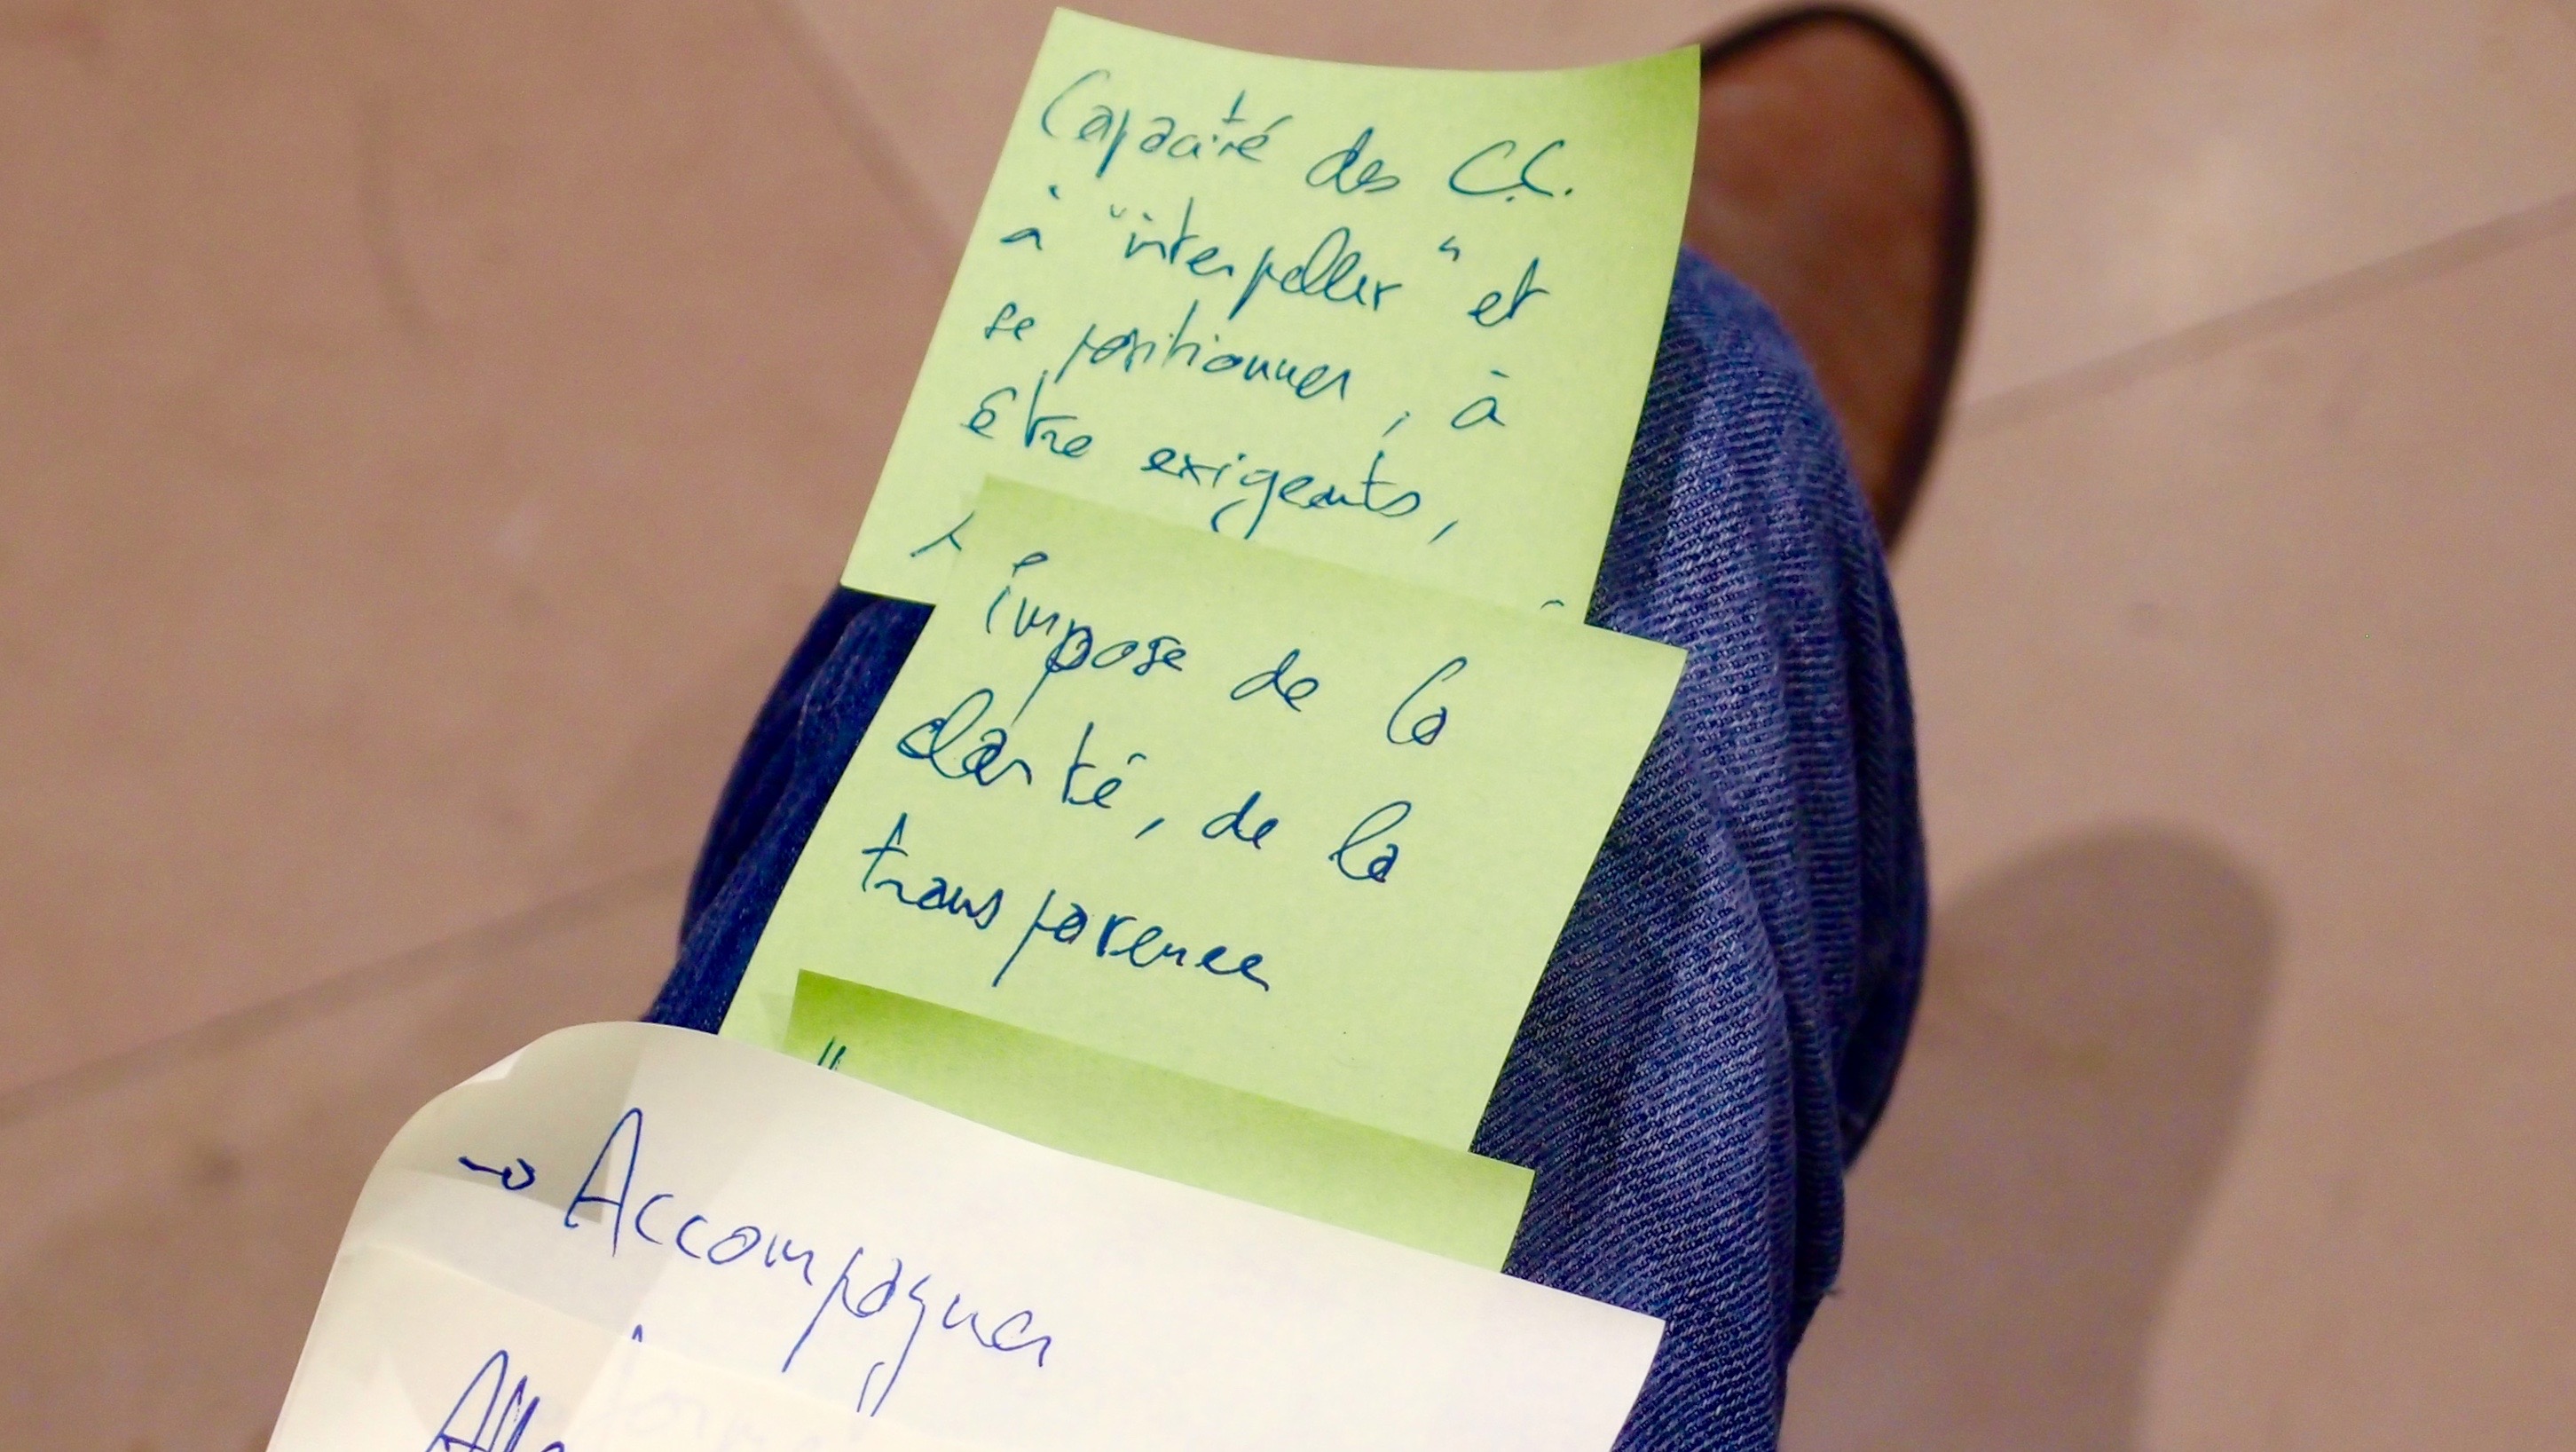 Capacité des C.C.
à "interpeller" et
se positionner, à
être exigeants,
impose de la
clarté, de la
transparence
→ Accompagner